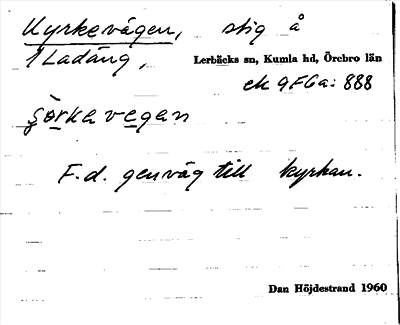 Kyrkevägen, stig å
1 Ladäng,
Lerbäcks sn, Kumla hd, Örebro län
ek 9F6a: 888
şòrka vegan
F.d. genväg till kyrkan.
Dan Höjdestrand 1960